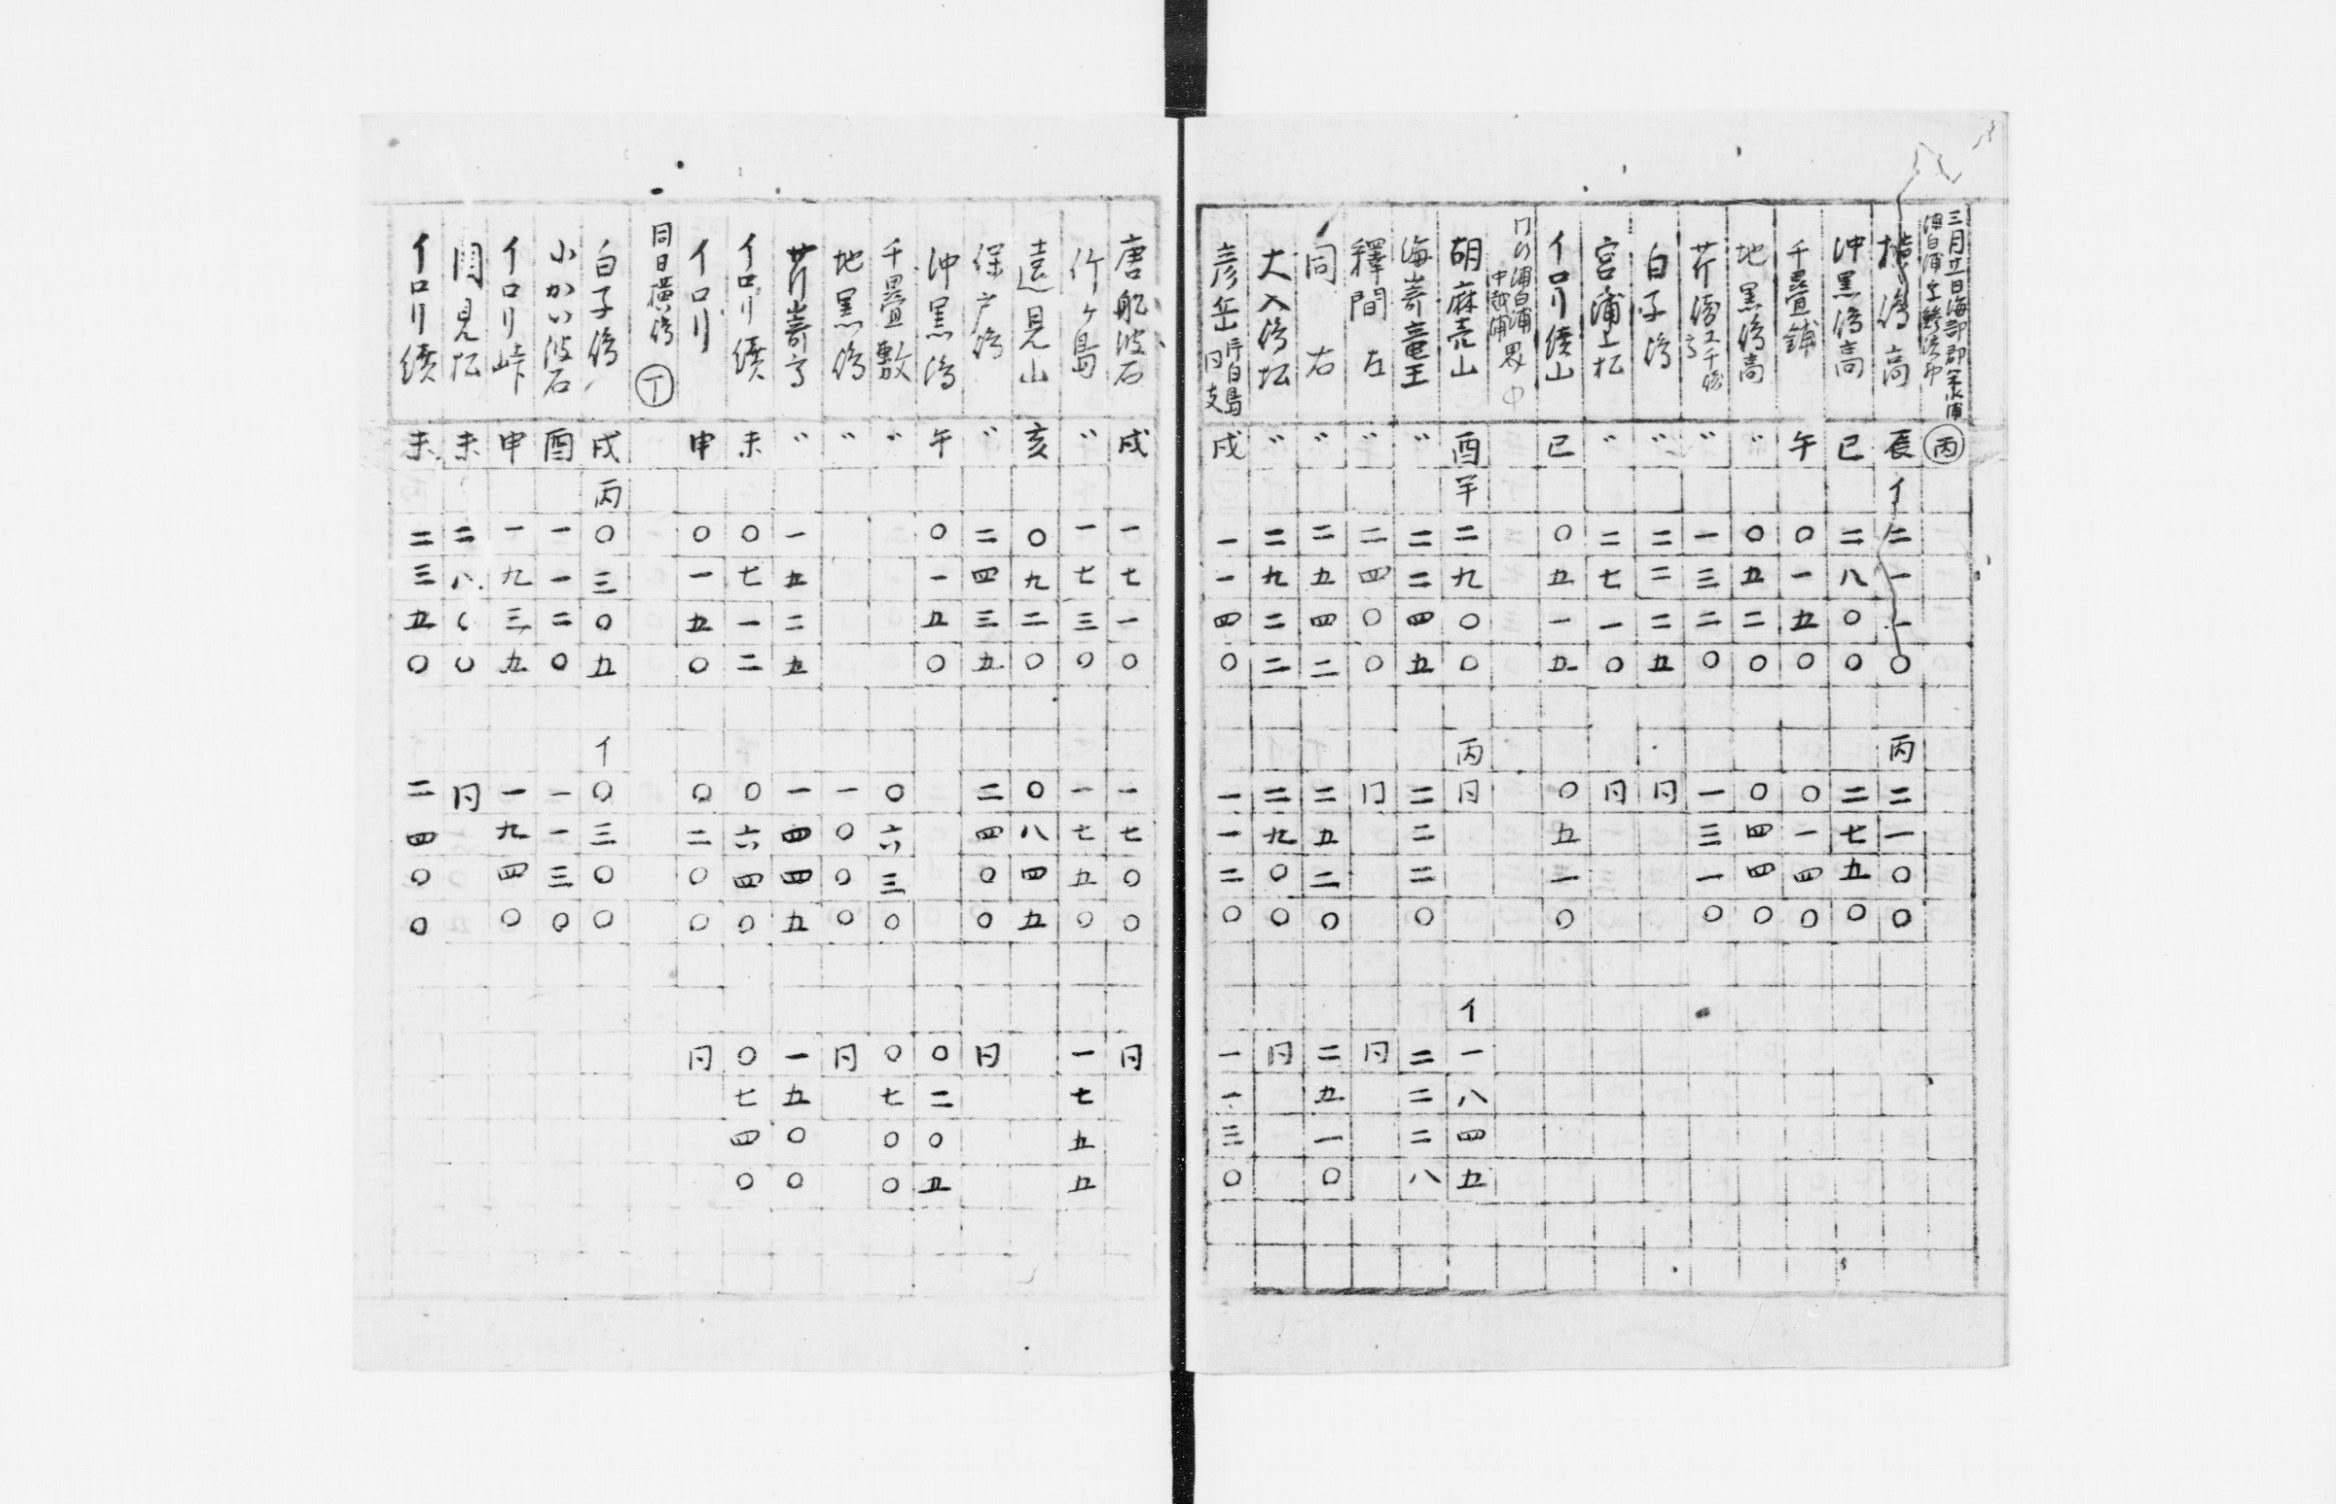 三月廿一日海部郡
丙
高 辰 イ 二一一〇 丙 二一〇〇
沖黒 高 巳 二八〇〇 二七五〇
千疊鋪 午 〇一五〇 〇一四〇
地黒 高 〃 〇五二〇 〇四四〇
芹 〃 一三二〇 一三一〇
白子 〃 二二二五 同
宮ノ浦上松 〃 二七一〇 同
イロリ 山 巳 〇五一五 〇五一〇
浦白浦 中越浦 界 中
胡麻売山 酉 羊 二九〇〇 丙 同 イ 一八四五
海嵜竜王 〃 二二四五 二二二〇 二二二八
釋間 左 〃 二四〇〇 同 同
同 右 〃 二五四二 二五二〇 二五一〇
大入 松 〃 二九二二 二九〇〇 同
彦岳 戌 一一四〇 一一二〇 一一三〇
唐船波石 戌 一七一〇 一七〇〇 同
竹ヶ島 〃 一七三〇 一七五〇 一七五五
遠見山 亥 〇九二〇 〇八四五
保戸 〃 二四三五 二四〇〇 同
沖黒 午 〇一五〇 〇二〇五
千疊敷 〃 〇六三〇 〇七〇〇
地黒 〃 一〇〇〇 同
芹嵜 〃 一五二五 一四四五 一五〇〇
イロリ 未 〇七一二 〇六四〇 〇七四〇
イロリ 申 〇一五〇 〇二〇〇 同
同日横 丁
白子 戌 丙 〇三〇五 イ 〇三〇〇
小かい波石 酉 一一二〇 一一三〇
イロリ峠 申 一九三五 一九四〇
月見松 未 二八 〇 同
イロリ 未 二三五〇 二四〇〇